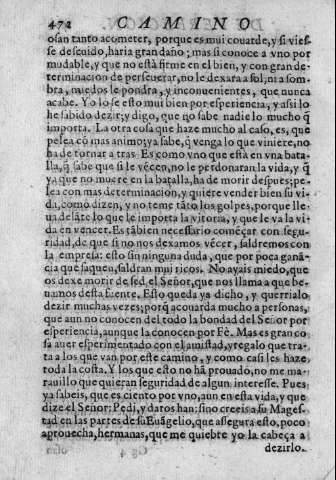 472 CAMINO
osan tanto acometer, porque es mui couarde, y si vies-
se descuido, haria gran daño; mas si conoce a vno por
mudable, y que no està firme en el bien, y con gran de-
terminacion de perseuerar, no le dexara a sol, ni a som-
bra, miedos le pondra, y inconuenientes, que nunca
acabe. Yo lo se esto mui bien por esperiencia, y assi lo
he sabido dezir; y digo, que no sabe nadie lo mucho q̃
importa. La otra cosa que haze mucho al caso, es, que
pelea cõ mas animo; ya sabe, q̃ venga lo que viniere, no
ha de tornar a tras. Es como vno que està en vna bata-
lla, q̃ sabe que si le vẽcen, no le perdonaran la vida, y q̃
ya que no muere en la batalla, ha de morir despues; pe-
lea con mas determinacion, y quiere vender bien su vi-
da, como dizen, y no teme tãto los golpes, porque lle-
ua delãte lo que le importa la vitoria, y que le va la vida
en vencer. Es tãbien necessario començar con segu-
ridad, de que si no nos dexamos vẽcer, saldremos con
la empresa: esto sin ninguna duda, que por poca ganã-
cia que saquen, saldran mui ricos. No ayais miedo, que
os dexe morir de sed el Señor, que nos llama a que be-
uamos desta fuente. Esto queda ya dicho, y querrialo
dezir muchas vezes; porq̃ acouarda mucho a personas,
que aun no conocen del todo la bondad del Señor por
esperiencia, aunque la conocen por Fè. Mas es gran co
sa auer esperimentado con el amistad, y regalo que tra-
ta a los que van por este camino, y como casi les haze
toda la costa. Y los que esto no hã prouado, no me ma-
rauillo que quieran seguridad de algun interesse. Pues
ya sabeis, que es ciento por vno, aun en esta vida, y que
dize el Señor: Pedi, y daros han; sino creeis a su Mages-
tad en las partes de su Euãgelio, que assegura esto, poco
aprouecha, hermanas, que me quiebre yo la cabeça a
dezirlo.